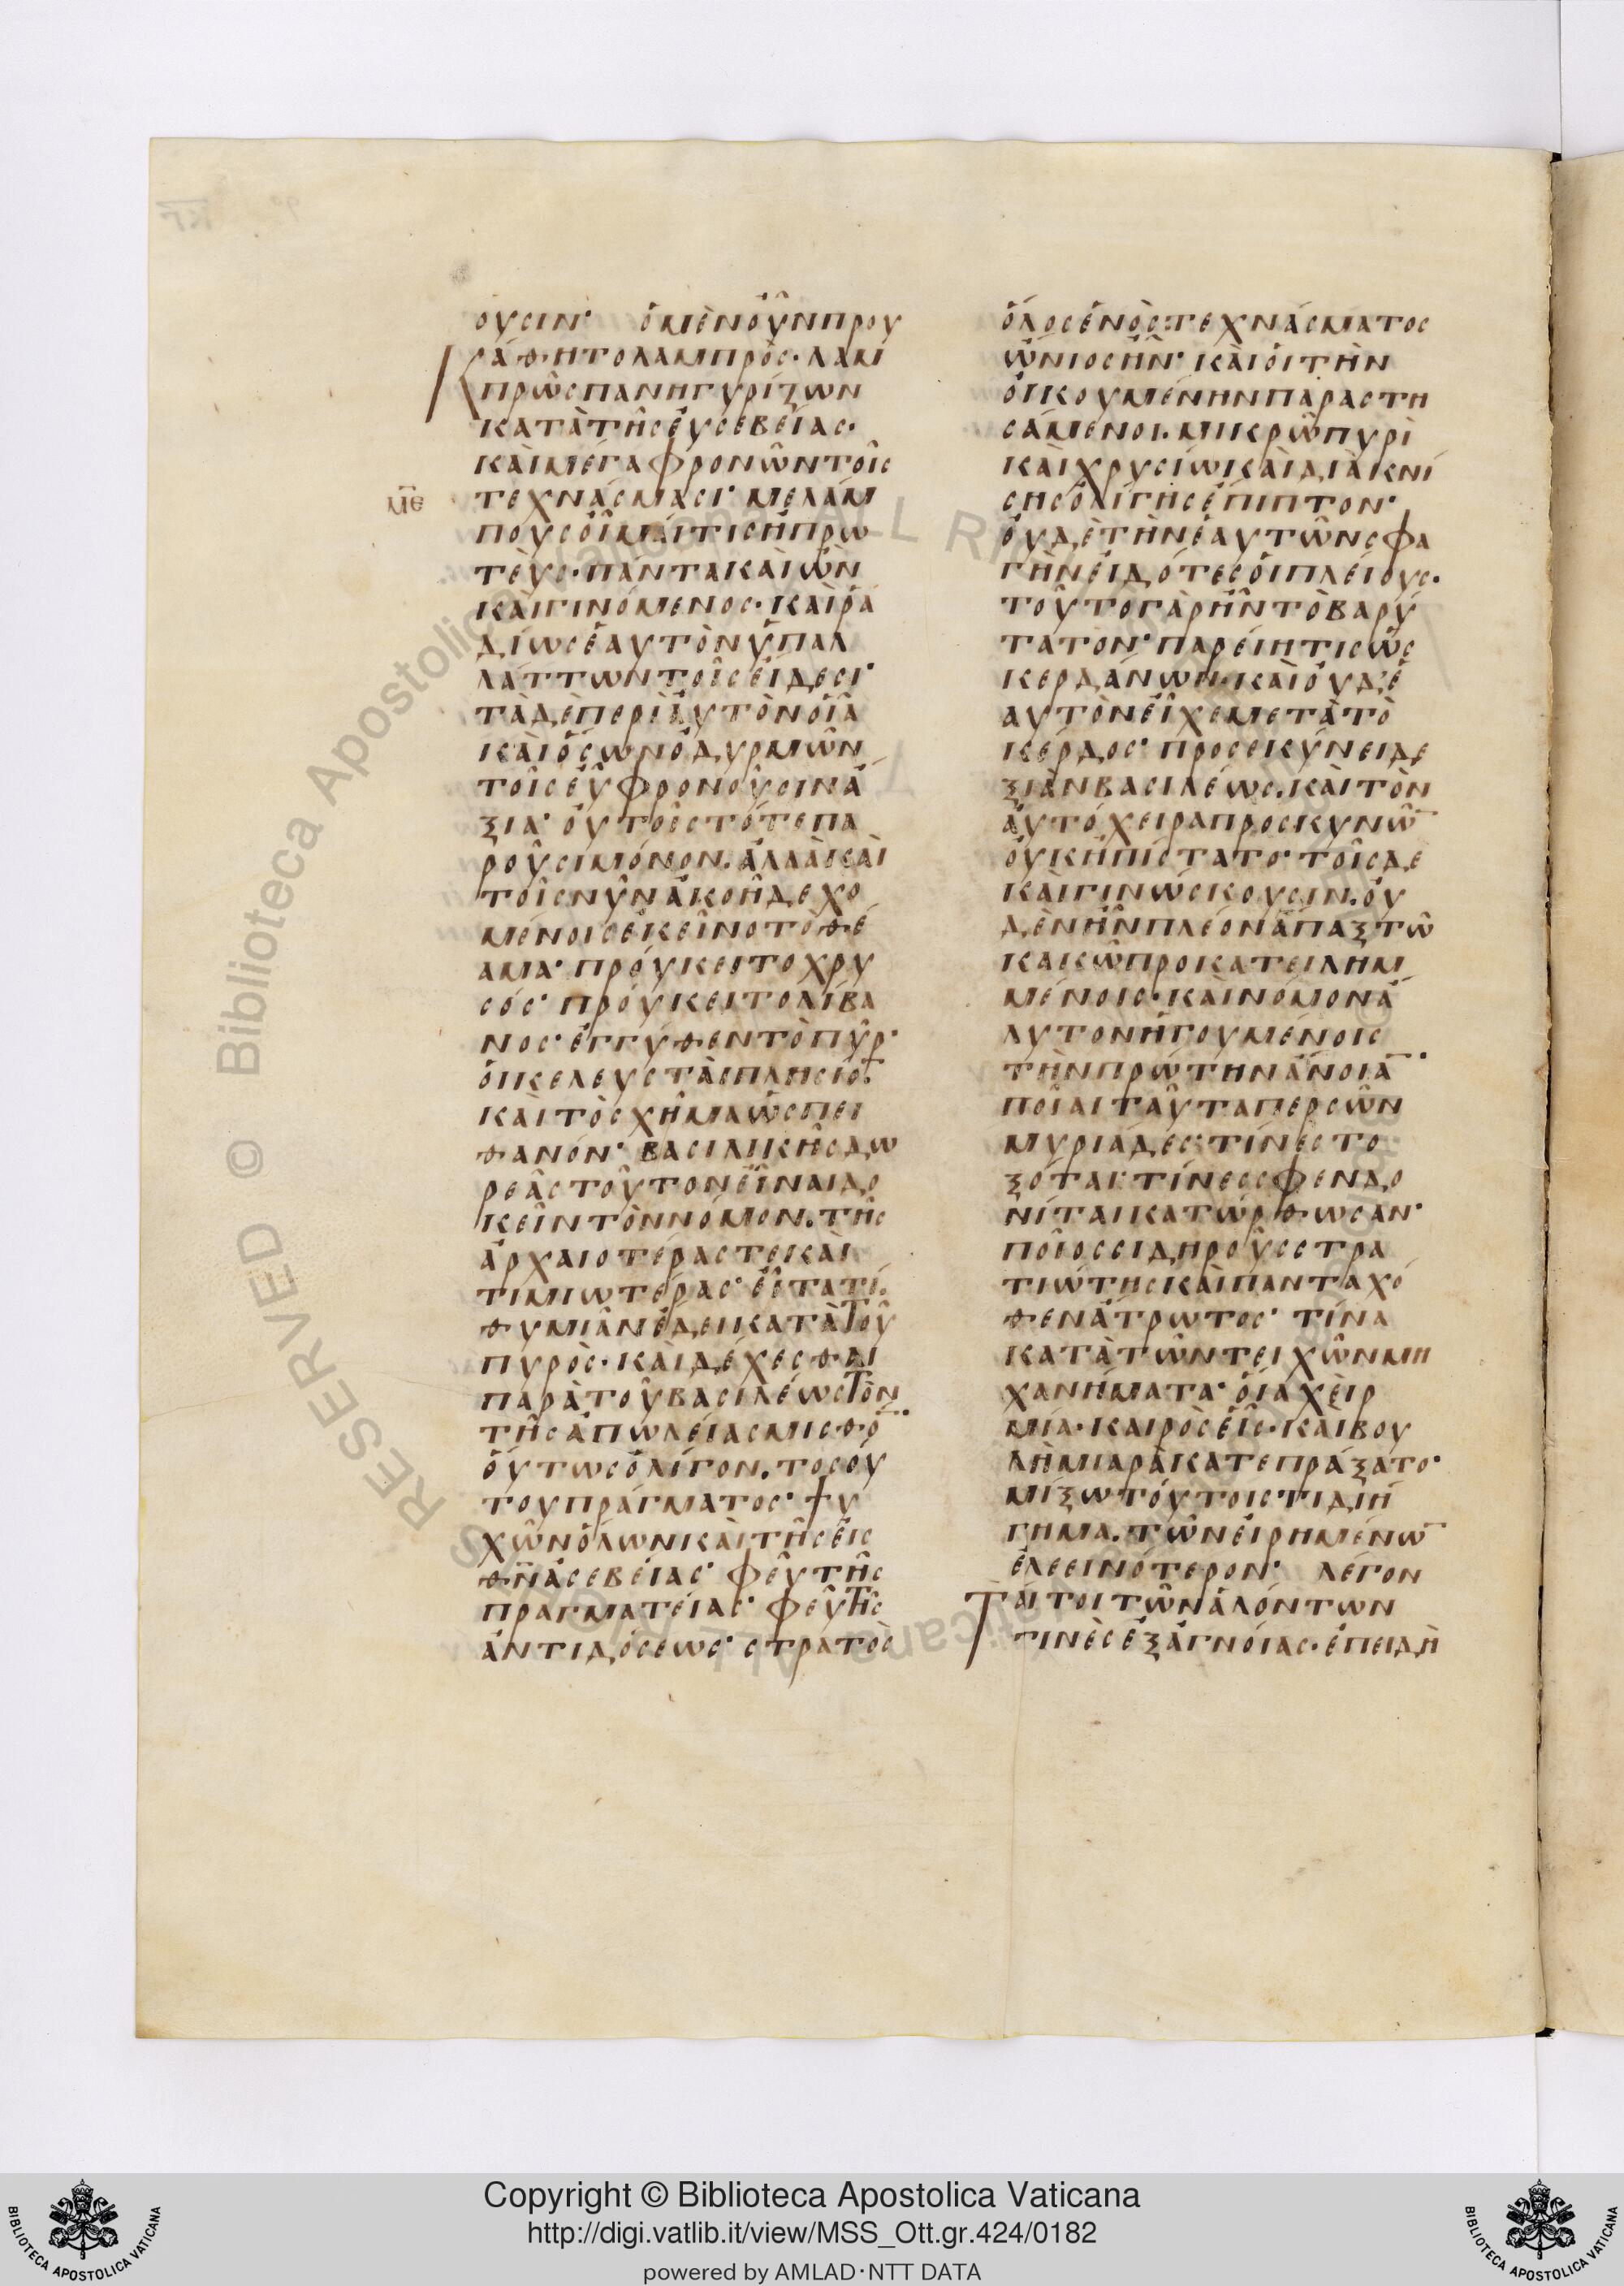 ουσιν· ὁ μὲν οὖν πρου
κάθητο λαμπρὸς· λαμ
πρῶς πανηγυρίζων
κατὰ τῆς εὐσεβείας·
καὶ μέγα φρονῶν τοῖς
με τεχνάσμασι· μελάμ
πους οἷμαί τις ἢ πρω
τεὺς· πάντα καὶ ὢν
καὶ γινόμενος· καὶ ῥα
δίως ἑαυτὸν ὑπαλ
λάττων τοῖς εἴδεσι·
τὰ δὲ περὶ αὐτὸν οἷα
καὶ ὅσων ὀδυρμῶν
τοῖς εὖ φρονοῦσιν ἄ
ξια· οὐ τοῖς τότε πα
ροῦσι μόνον. ἀλλὰ καὶ
τοῖς νῦν ἀκοῇ δεχο
μένοις ἐκεῖνο τὸ θέ
αμα· προύκειτο χρυ
σός· προύκειτο λίβα
νος· ἐγγύθεν τὸ πῦρ·
οἱ κελευσταὶ πλησίον·
καὶ τὸ σχῆμα ὡς πει
θανόν· βασιλικῆς δω
ρεᾶς τοῦτον εἶναι δο
κεῖν τὸν νόμον. τῆς
ἀρχαιοτέρας τε καὶ
τιμιωτέρας· εἶτα τί.
θυμιᾶν ἔδει κατὰ τοῦ
πυρὸς· καὶ δέχεσθαι
παρὰ τοῦ βασιλέως τὸν
τῆς ἀπωλείας μισθό̅·
οὕτως ὀλίγον. τοσού
του πράγματος· ψυ
χῶν ὅλων καὶ τῆς εἰς
θ̅ν̅ ἀσεβείας· φεῦ τῆς
πραγματείας· φεῦ τῆς
ἀντιδόσεως· στρατὸς
ὅλος ἑνὸς τεχνάσματος
ὤνιος ἦν· καὶ οἱ τὴν
οἰκουμένην παραστη
σάμενοι. μικρῷ πυρὶ
καὶ χρυσίῳ καὶ διὰ κνί
σης ὀλίγης ἔπιπτον·
οὐδὲ τὴν ἑαυτῶν σφα
γὴν εἰδότες οἱ πλείους.
τοῦτο γὰρ ἦν τὸ βαρύ
τατον· παρείη τις ὡς
κερδάνων· καὶ οὐδ' ἑ
αυτὸν εἶχε μετὰ τὸ
κέρδος· προσεκύνει δε
ξιὰν βασιλέως. καὶ τὸν
αὐτόχειρα προσκυνῶ̅
οὐκ ἠπίστατο· τοῖς δὲ
καὶ γινώσκουσιν. οὐ
δὲν ἦν πλέον ἅπαξ τῷ
κακῷ προκατειλημ
μένοις· καὶ νόμον ἄ
λυτον ἡγουμένοις
τὴν πρώτην ἄνοια̅·
ποῖαι ταῦτα περσῶν
μυριάδες· τίνες το
ξόται· τίνες σφενδο
νῖται κατώρθωσαν·
ποῖος σιδηροῦς στρα
τιώτης καὶ πανταχό
θεν ἄτρωτος· τίνα
κατὰ τῶν τειχῶν μη
χανήματα· οἷα χεὶρ
μία· καιρὸς εἷς· καὶ βου
λὴ μιαρὰ κατεπράξατο·
μίξω τούτοις τι διή
γημα. τῶν εἰρημένω̅
ἐλεεινότερον· λέγον
ταί τοι τῶν ἁλόντων
τινὲς ἐξ ἀγνοίας· ἐπειδὴ
Copyright © Biblioteca Apostolica Vaticana
http://digi.vatlib.it/view/MSS_Ott.gr.424/0182
powered by AMLAD·NTT DATA
BIBLIOTECA APOSTOLICA VATICANA
BIBLIOTECA APOSTOLICA VATICANA